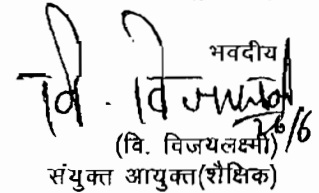 भवदीय
वि. विजयलक्ष्मी
26/6
(वि. विजयलक्ष्मी)
संयुक्त आयुक्त(शैक्षिक)